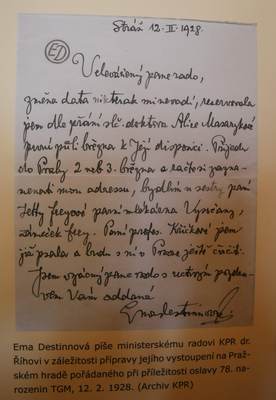 Stráž 12-II-1928.
ED
Velevážený pane rado,
změna data nikterak mi nevadí, reservovala
jsem dle přání slč. doktora Alice Masarykové
první půli března k Její disposici. Přijedu
do Prahy 2 neb 3. března a račtesi zazna-
menati mou adressu, bydlím u sestry paní
Jetty Freyové Vysočany,
zámeček Frey. Paní profes. jsem
již psala a budu s ní v Praze ještě cvičiti.
Jsem vzácný pane rado s uctivým pozdra-
vem Vám oddaná
EmaDestinnová.
Ema Destinnová píše ministerskému radovi KPR dr.
Říhovi v záležitosti přípravy jejího vystoupení na Praž-
ském hradě pořádaného při příležitosti oslavy 78. na-
rozenin TGM, 12. 2. 1928. (Archiv KPR)